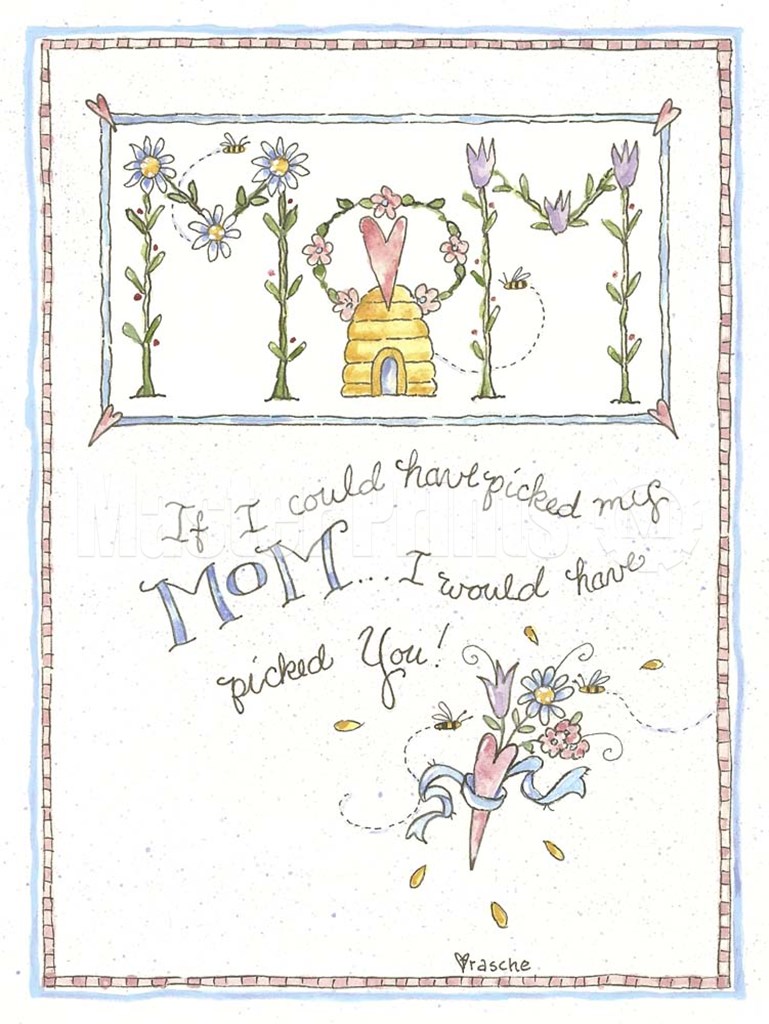 MOM
If I could have picked my
MOM... I would have
picked You!
Master Prints
rasche